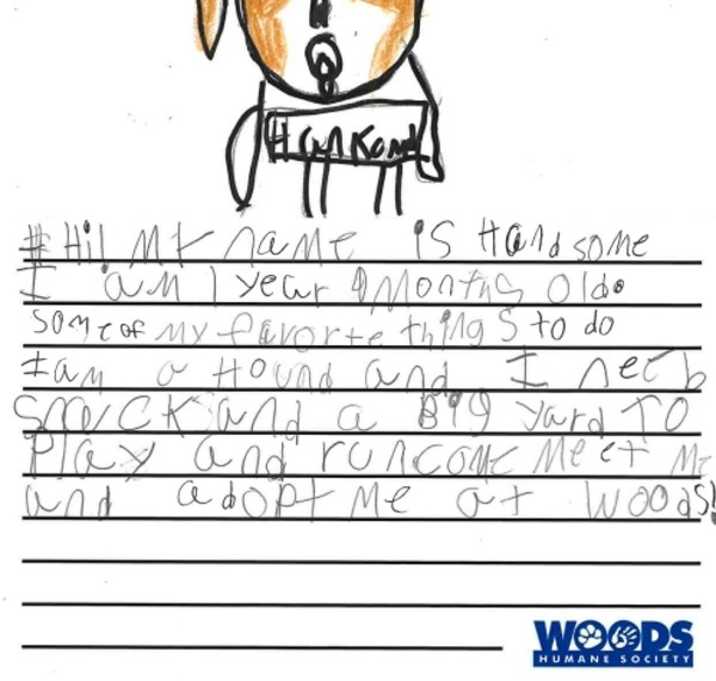 # Hi! My name is Handsome
I am 1 year 9 months old.
some of my favorte things to do
I am a Hound and I neeb
snack and a Big yard TO
Play and run come Meet Me
and adopt Me at Woods!
WOODS
HUMANE SOCIETY